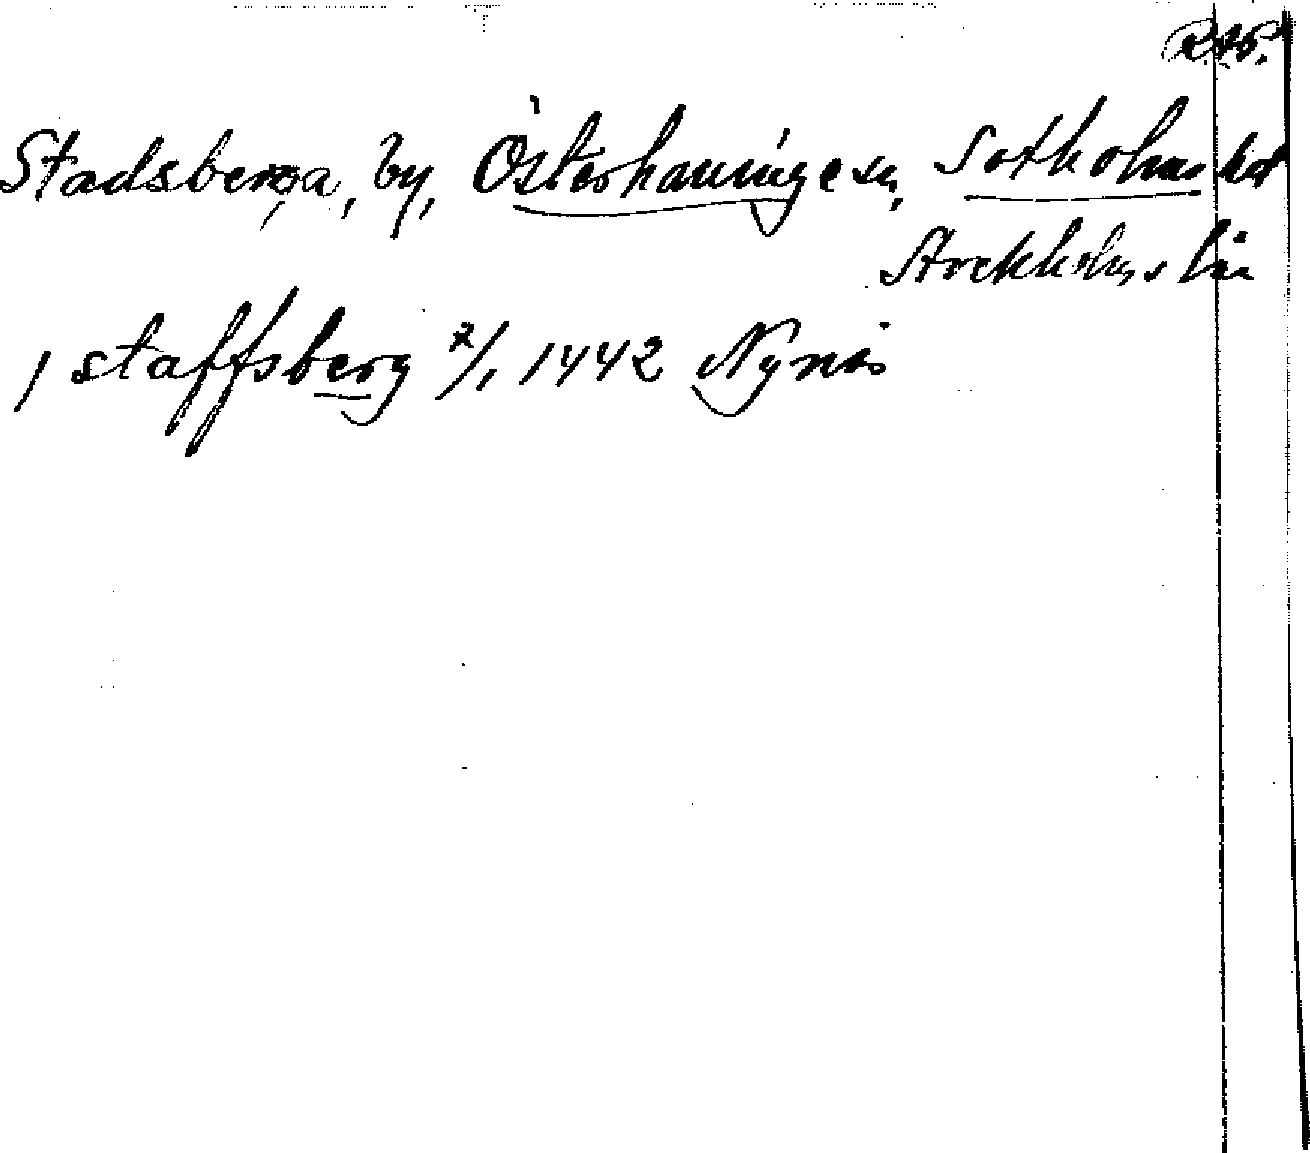 Stadsberga, by, Österhaninge sn, Sotholms hd
Stockholms län
1 staffsberg 2/1 1442 Nynäs